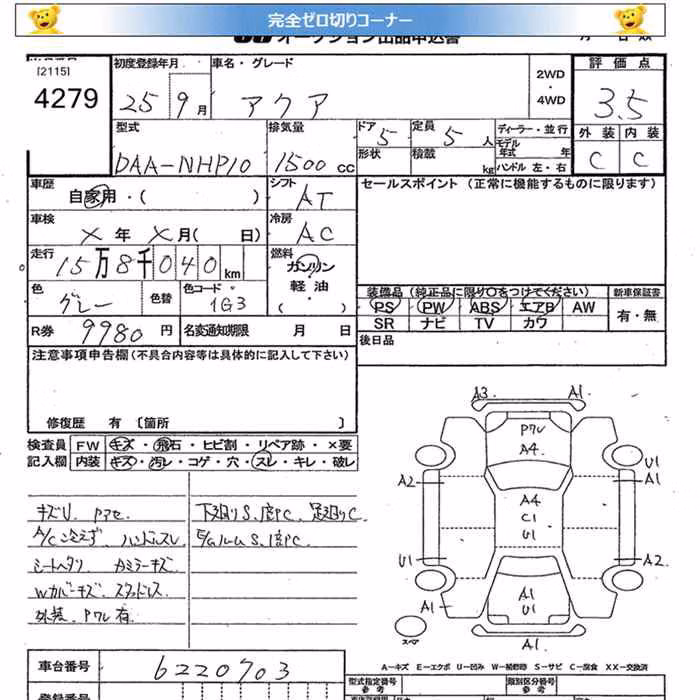 完全ゼロ切りコーナー
オークション出品申込書
[2115]
4279
初度登録年月
25 9月
車名・グレード
アクア
2WD
・
4WD
評価点
3.5
型式
DAA-NHP10
排気量
1500 CC
ドア 5
定員 5 人
形状
積載 kg
ディーラー・並行
モデル年式 年
ハンドル 左・右
外装 内装
C C
車歴
自家用・( )
シフト
AT
セールスポイント (正常に機能するものに限ります)
車検
X 年 X 月( 日)
冷房
AC
走行
15万8千040km
燃料
ガソリン
軽・油
( )
色
グレー
色替
色コード
1G3
装備品 (純正品に限り○をつけてください)
PS PW ABS エアB AW
SR ナビ TV カワ
新車保証書
有・無
R券 9980円
名変通知期限 月 日
後日品
注意事項申告欄(不具合内容等は具体的に記入して下さい)
修復歴 有 〔箇所 〕
検査員記入欄
FW キズ・飛石・ヒビ割・リペア跡・×要
内装 キズ・汚レ・コゲ・穴・スレ・キレ・破レ
キズU. Pアセ
A/C冷えず. ハンドルスレ
シートヘタリ カミラーキズ
Wカバーキズ スタッドレス
外装. Pワレ有
下廻りS.腐PC. 足廻りC
E/GルームS.腐PC.
A3 A1
Pワレ
A4
U1
A2 A1
A4
C1
U1
U1 A2
A1
U1
A1 A1
スペア
A1
A-キズ E-エクボ U-凹み W-補修跡 S-サビ C-腐食 XX-交換済
車台番号
6220703
型式指定番号
参考
類別区分番号
参考
登録番号